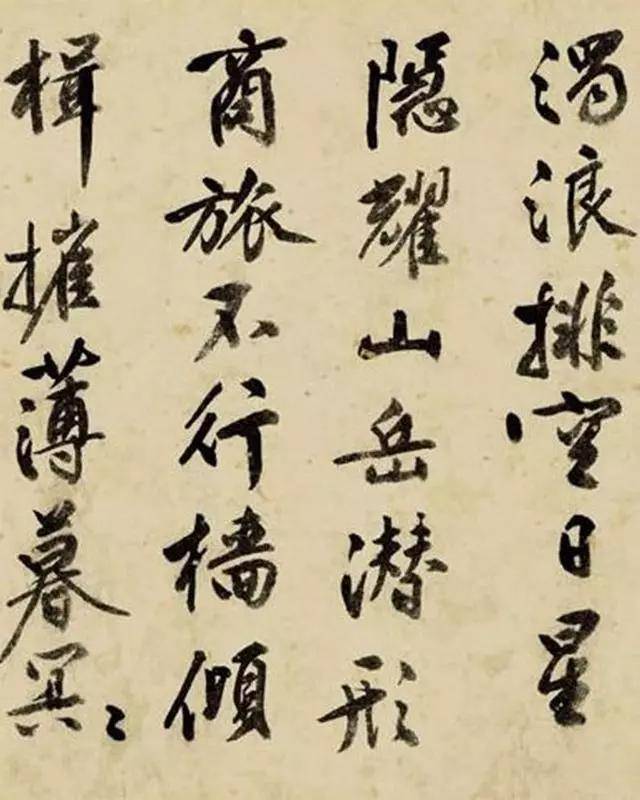 濁浪排空日星
隱耀山岳潛形
商旅不行檣傾
楫摧薄暮冥〻